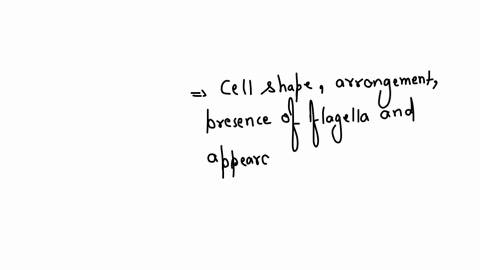 => Cell shape, arrongement,
presence of flagella and
appearc